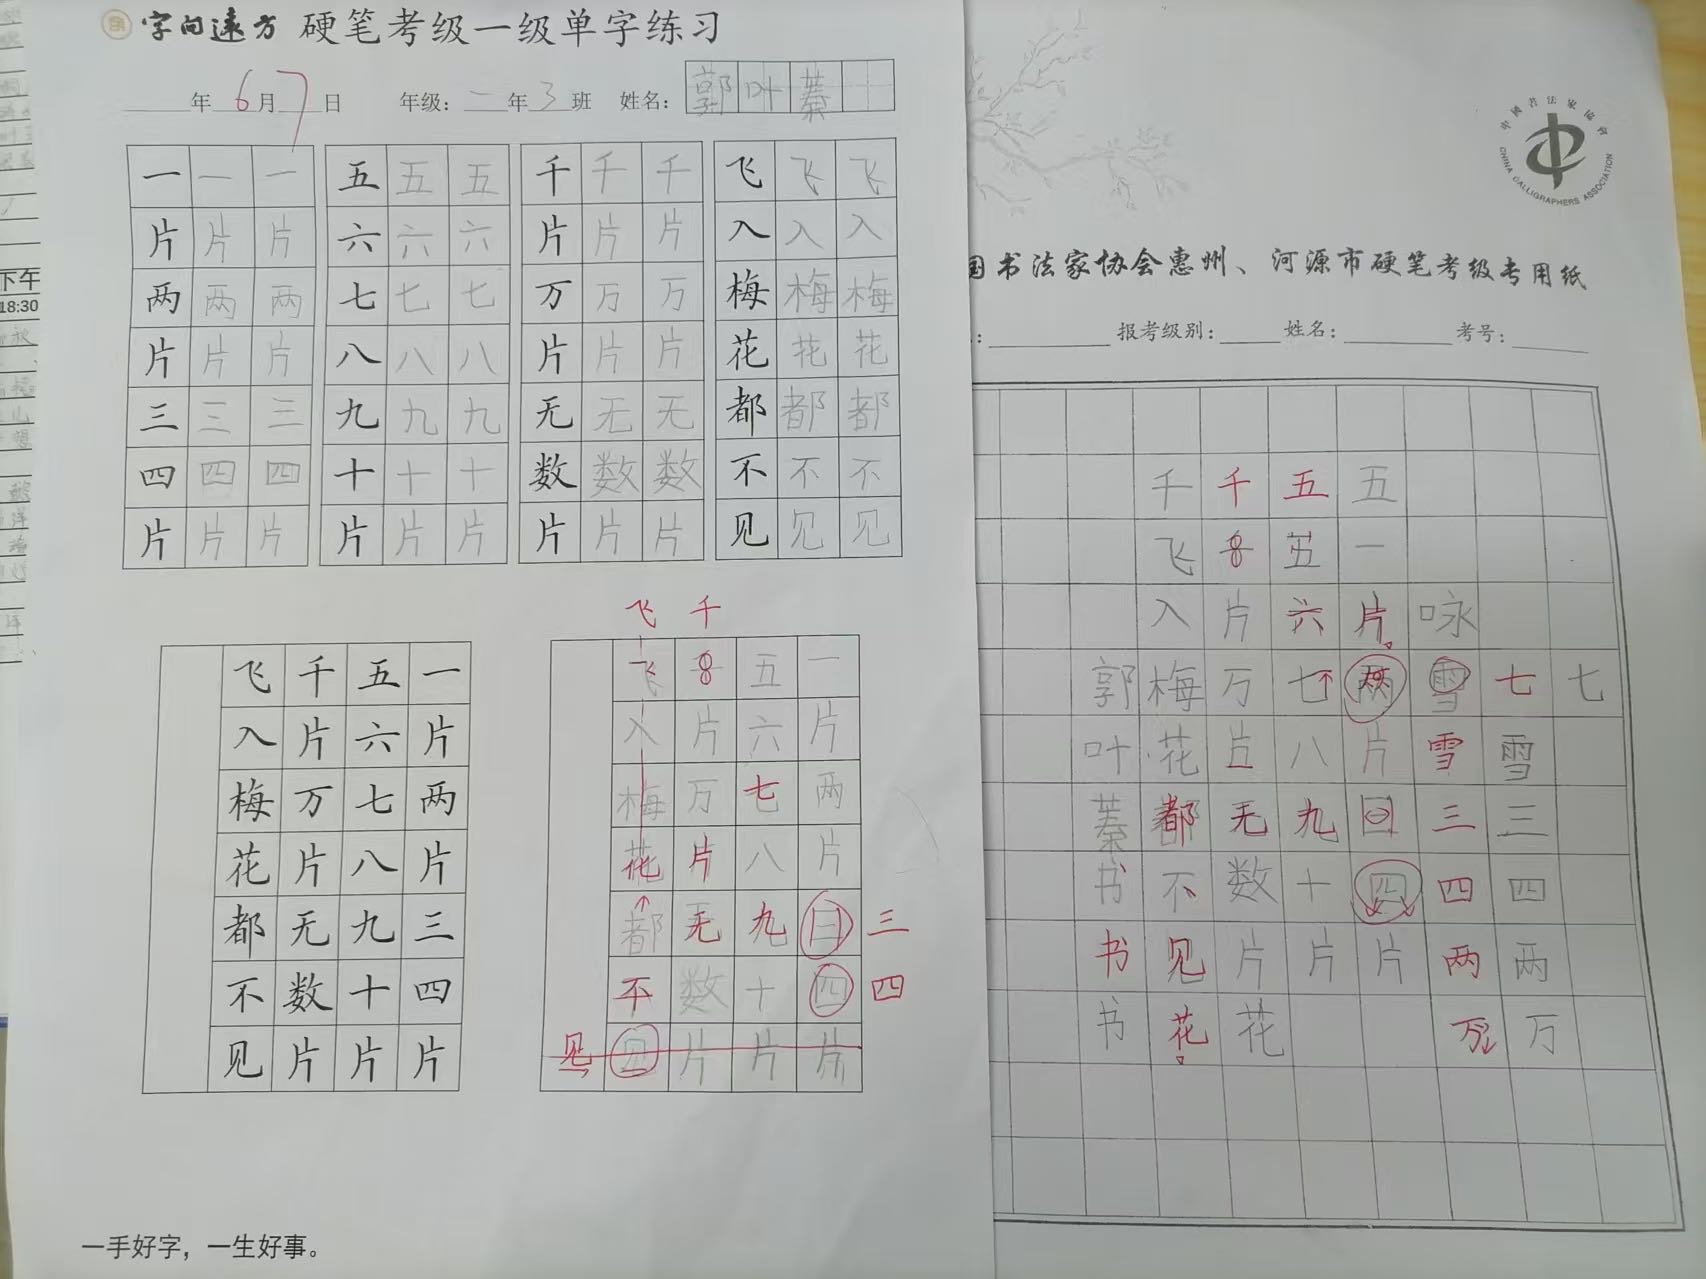 字向远方 硬笔考级一级单字练习
年6月7日 年级:二年3班 姓名:郭叶蓁
一 一 一 五 五 五 千 千 千 飞 飞 飞
片 片 片 六 六 六 片 片 片 入 入 入
两 两 两 七 七 七 万 万 万 梅 梅 梅
片 片 片 八 八 八 片 片 片 花 花 花
三 三 三 九 九 九 无 无 无 都 都 都
四 四 四 十 十 十 数 数 数 不 不 不
片 片 片 片 片 片 片 片 片 见 见 见
飞 千 五 一
入 片 六 片
梅 万 七 两
花 片 八 片
都 无 九 三
不 数 十 四
见 片 片 片
飞 千
飞 五 一
入 片 六 片
梅 万 七 两
花 片 八 片
都 无 九 三
不 数 十 四 四
见 见 片 片 片
一手好字，一生好事。
中国书法家协会
CHINA CALLIGRAPHERS ASSOCIATION
国书法家协会惠州、河源市硬笔考级专用纸
报考级别: 姓名: 考号:
千 千 五 五
飞 五 一
入 片 六 片 咏
郭 梅 万 七 两 雪 七 七
叶 花 片 八 片 雪 雪
蓁 都 无 九 三 三
书 不 数 十 四 四 四
书 见 片 片 片 两 两
书 花 花 万 万
下午
18:30